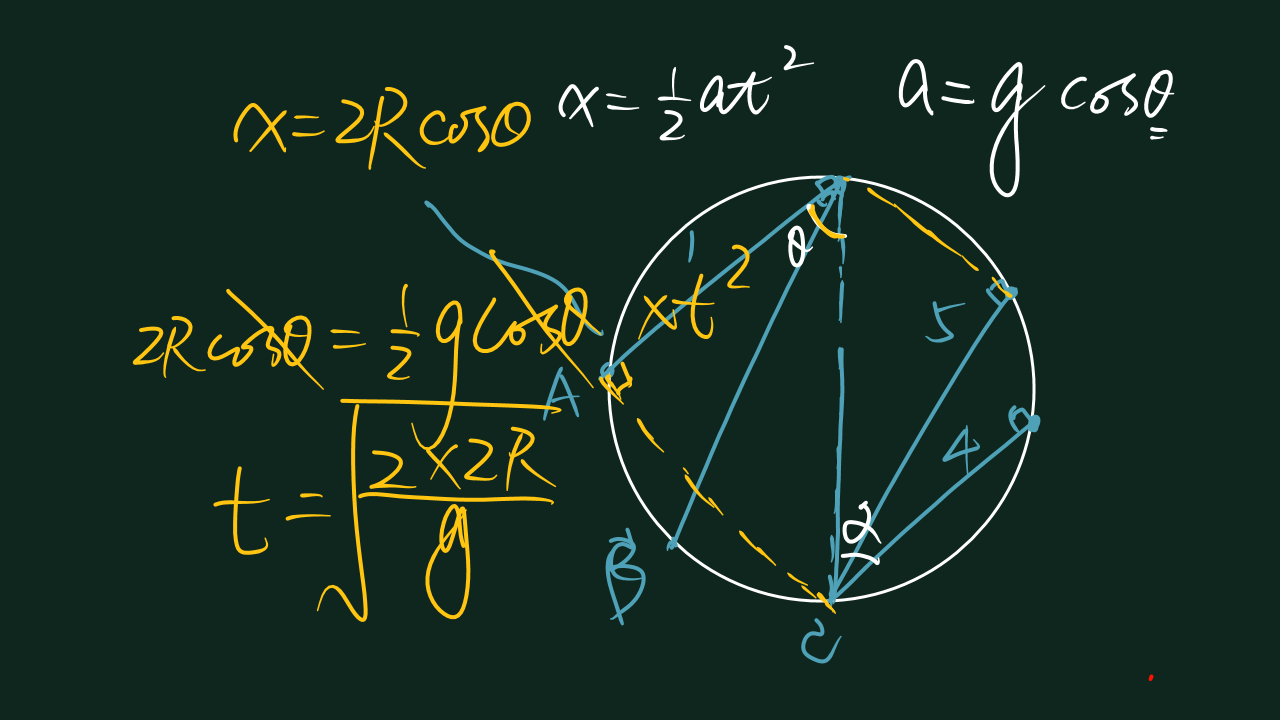 x=2Rcosθ
x=½at²
a=g cosθ
2Rcosθ=½gcosθ xt²
t=√(2×2R/g)
1
θ
5
4
A
α
B
C